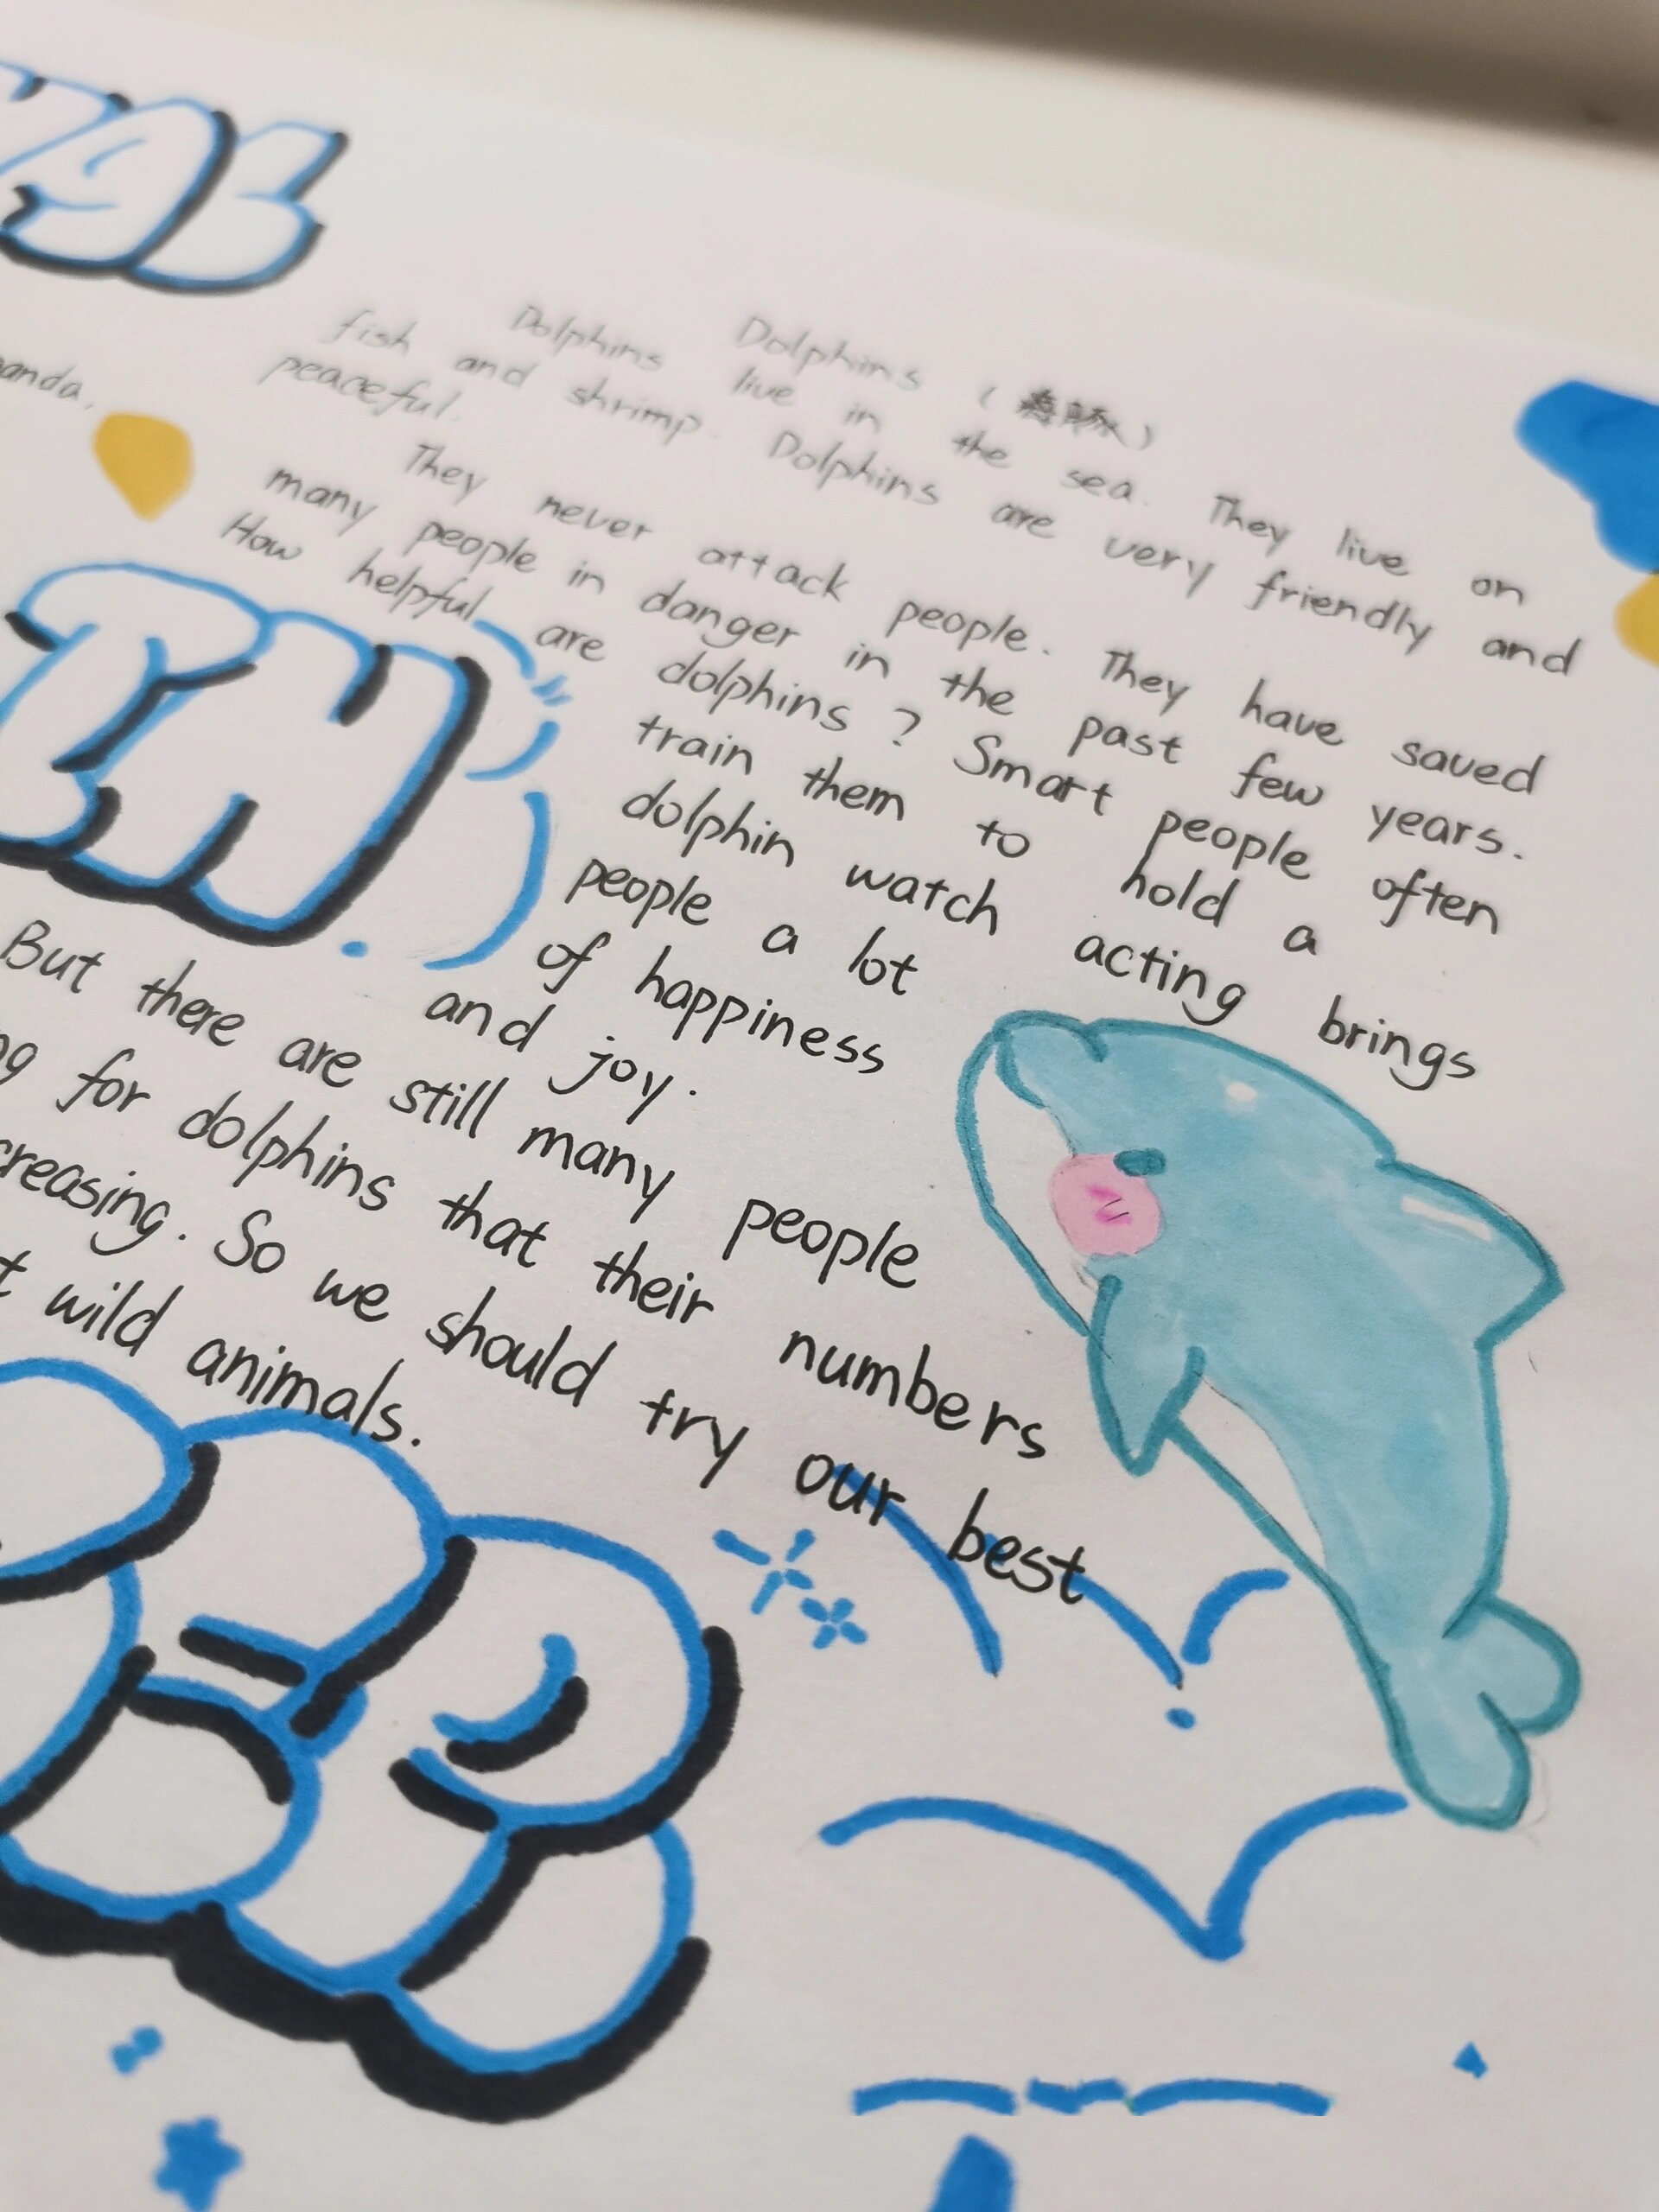 Dolphins
Dolphins live in the sea. They live on
fish and shrimp. Dolphins are very friendly and
peaceful.
They never attack people. They have saved
many people in danger in the past few years.
How helpful are dolphins? Smart people often
train them to hold a
dolphin watch acting brings
people a lot
of happiness
and joy.
panda,
IN
But there are still many people
for dolphins that their numbers
creasing. So we should try our best
wild animals.